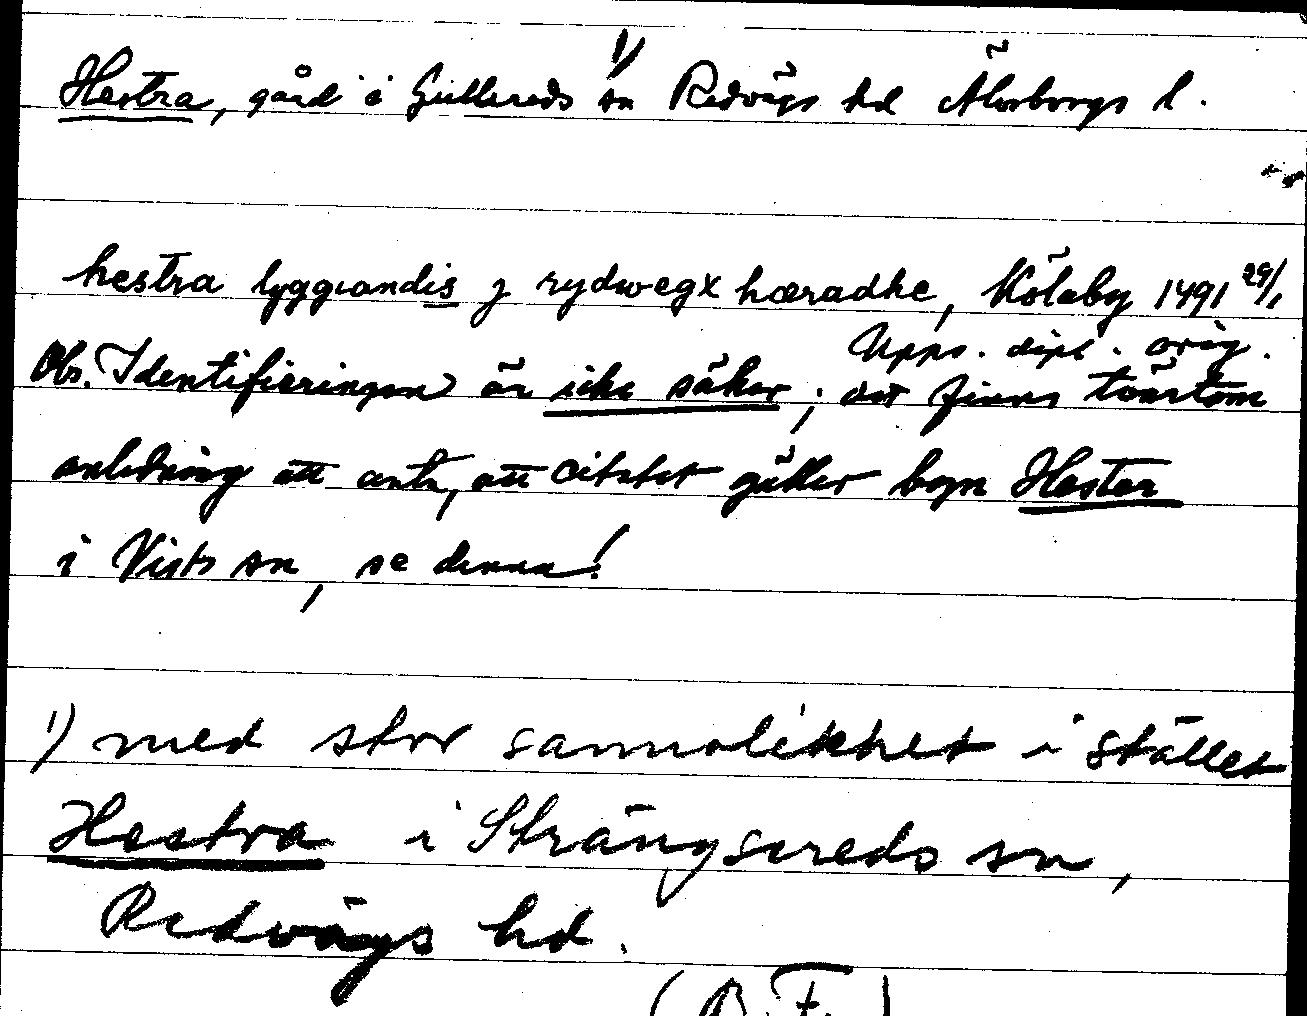 Hestra, gård i Gullereds sn 1) Redvägs hd Älvsborgs l.
hestra lyggiandis j rydwegx hæradhe, Kölaby 1491 29/1
Upps. dipl. orig.
Obs. Identifieringen är icke säker; det finns tvärtom
anledning att anta, att citatet gäller byn Hester
i Vists sn, se denna!
1) med stor sannolikhet i stället
Hestra i Strängsereds sn,
Redvägs hd.
(B. F.)